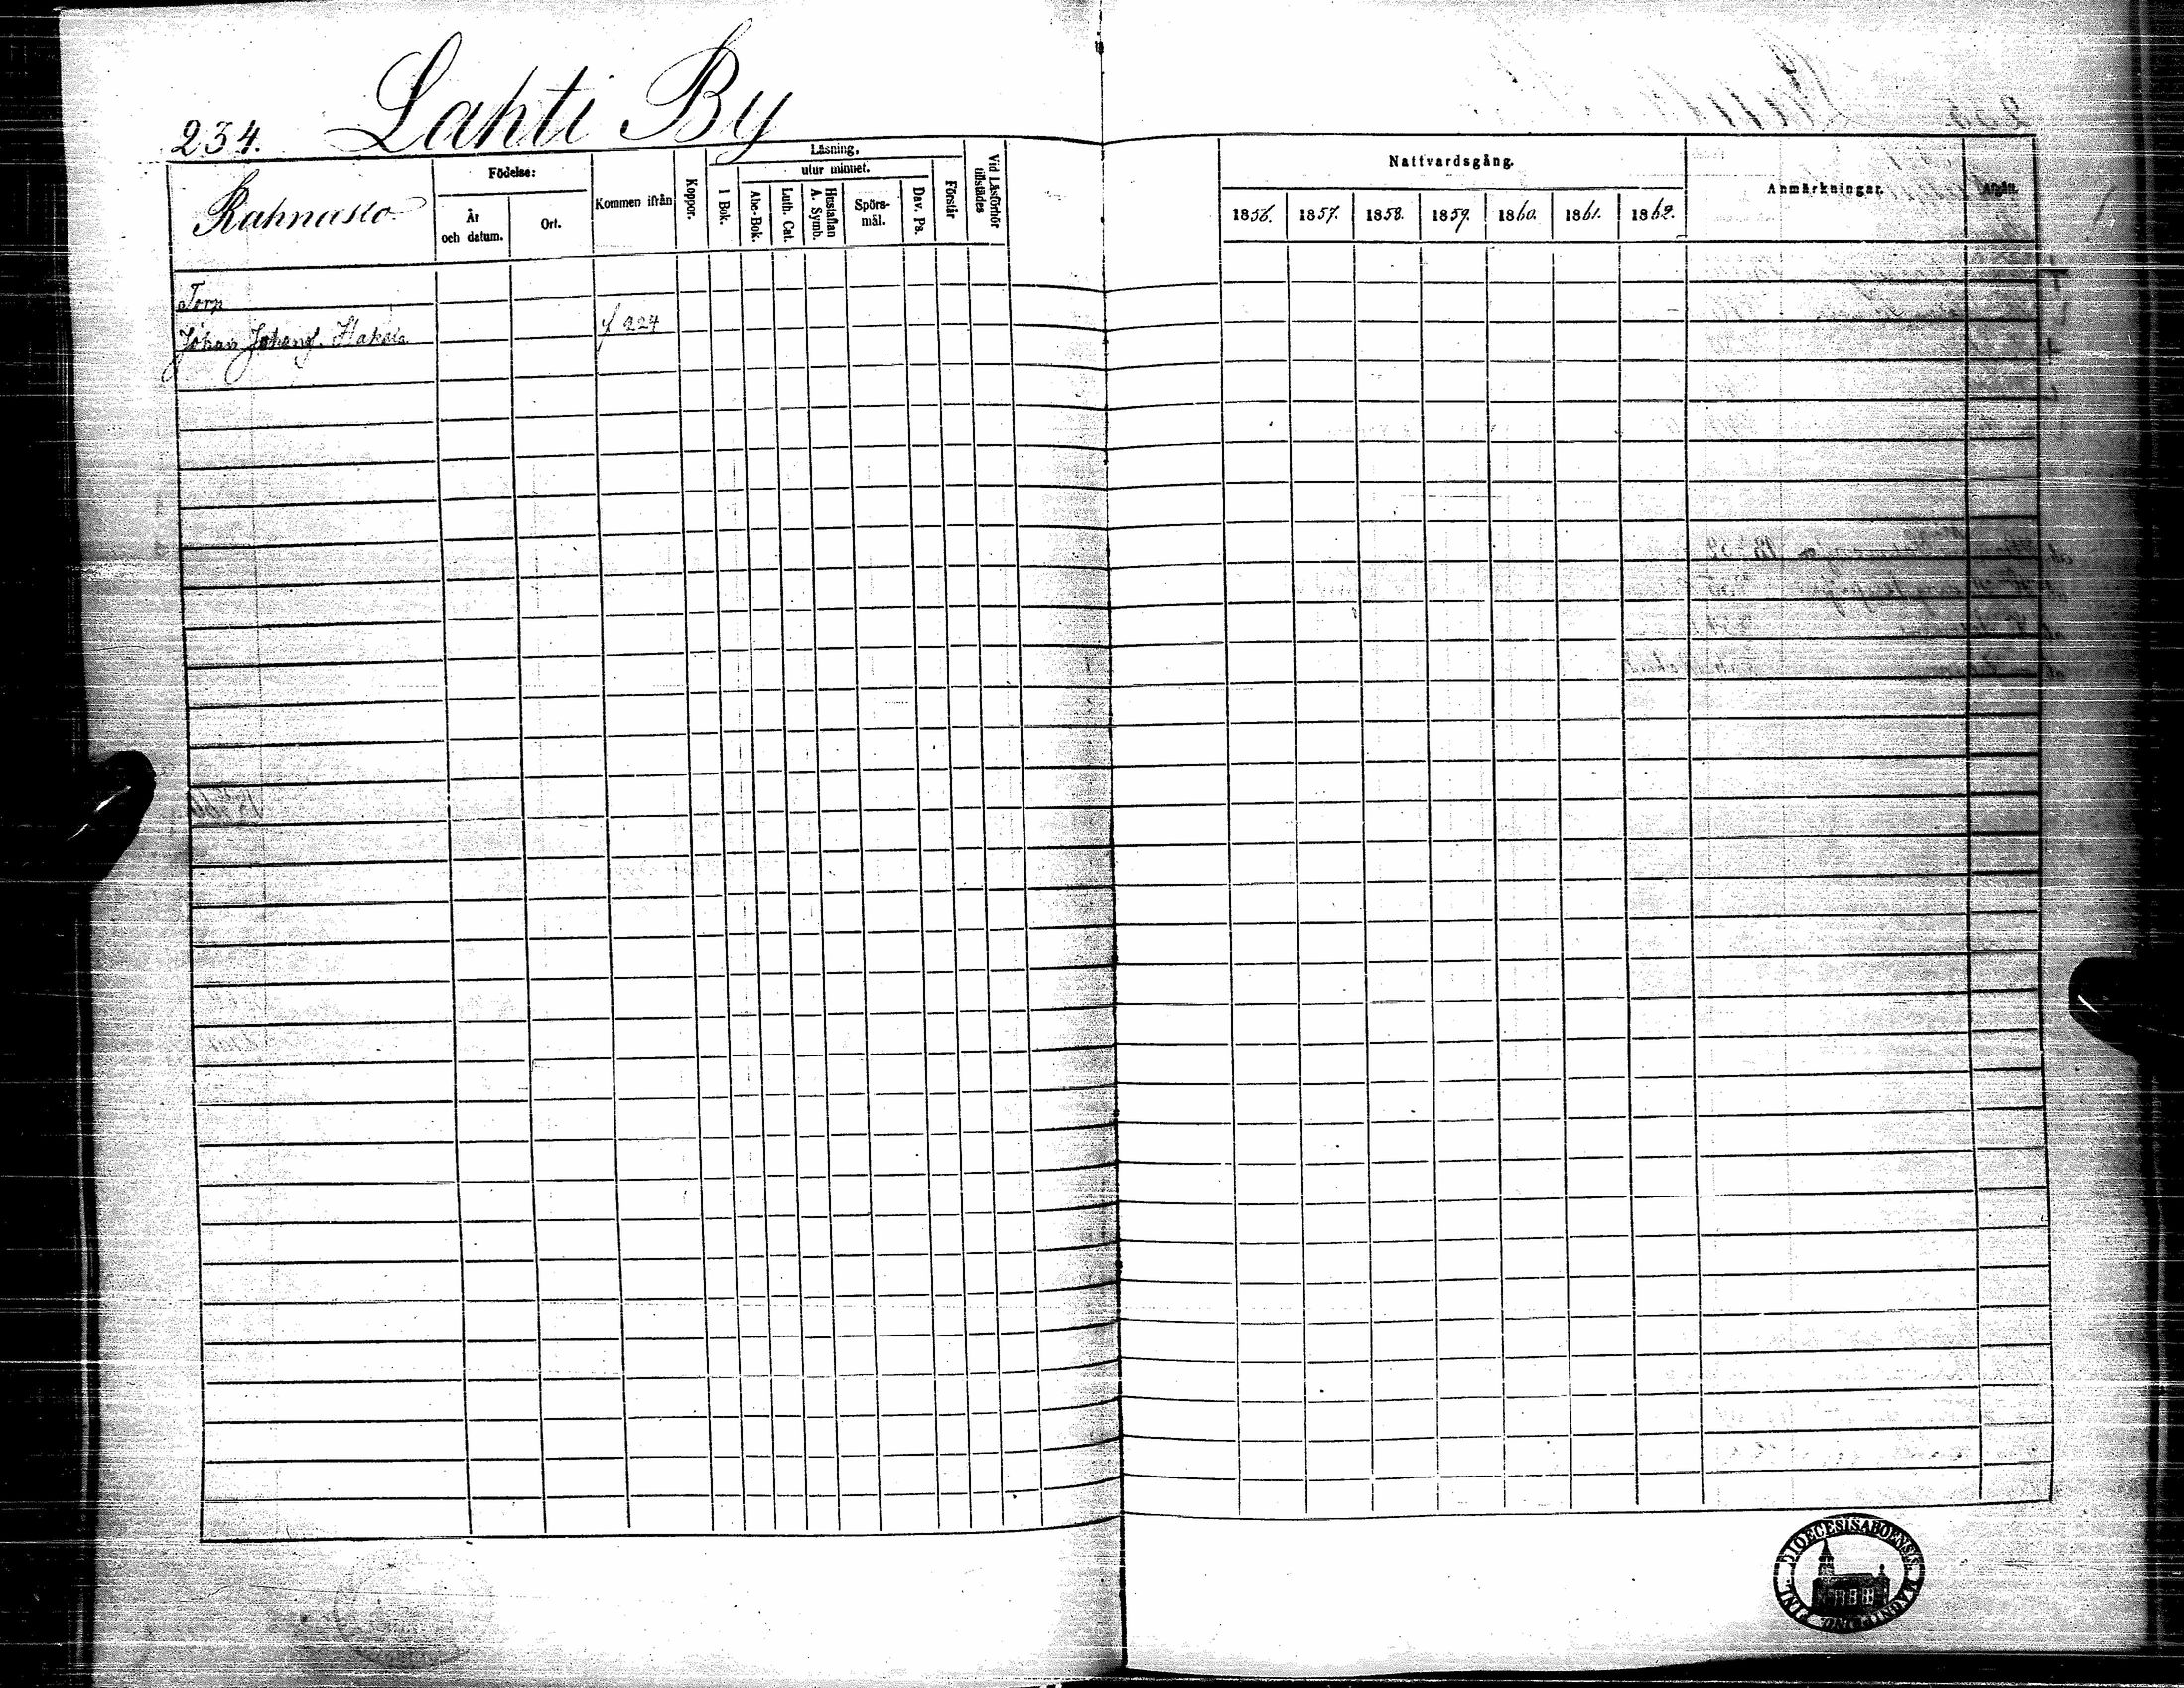 234. Lahti By
Rahnasto
Födelse:
År
och datum.
Ort.
Kommen ifrån
Koppor.
Läsning,
utur minnet.
I Bok.
Abc-Bok.
Luth. Cat.
Hustaflan
A. Symb.
Spörs-
mål.
Dav. Ps.
Förstår
Vid Läsförhör
tillstädes
Nattvardsgång.
1856. 1857. 1858. 1859. 1860. 1861. 1862.
Anmärkningar.
Afgått.
Torp
Johan Johansf. Hakala f 224
DIOECESIS ABOENSIS
MAGNI PRINC. FINL.